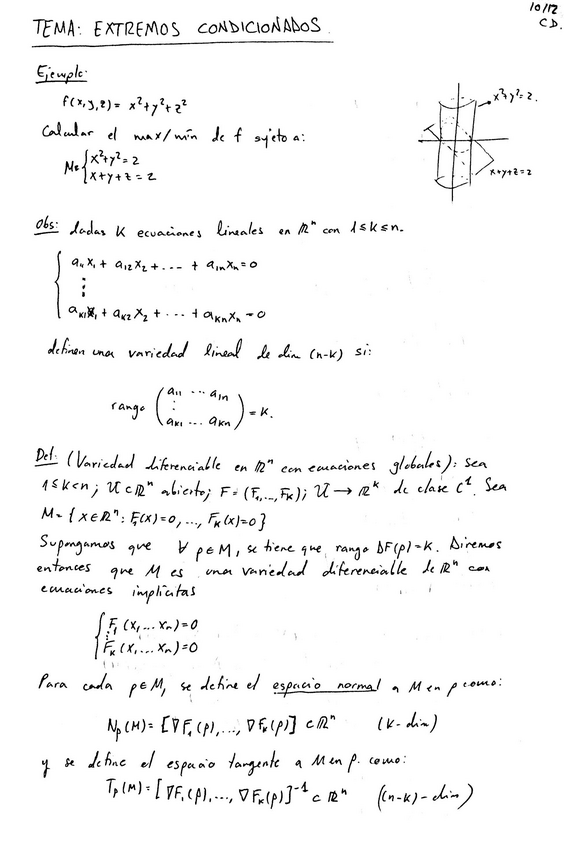 10/12
C.D.
TEMA: EXTREMOS CONDICIONADOS.
Ejemplo:
f(x,y,z) = x²+y²+z²
Calcular el max/mín de f sujeto a:
M≡ { x²+y²=2
x+y+z=2
x²+y²=2.
x+y+z=2
Obs: dadas K ecuaciones lineales en ℝⁿ con 1≤k≤n.
a₁₁x₁ + a₁₂x₂ + ... + a₁ₙxₙ=0
⋮
aₖ₁x₁ + aₖ₂x₂ + ... + aₖₙxₙ=0
definen una variedad lineal de dim (n-k) si:
rango ( a₁₁ ... a₁ₙ
⋮
aₖ₁ ... aₖₙ ) = K.
Def: (Variedad diferenciable en ℝⁿ con ecuaciones globales): sea
1≤k<n; U⊂ℝⁿ abierto; F=(F₁,...,Fₖ); U → ℝᵏ de clase C¹. Sea
M={x∈ℝⁿ: F₁(x)=0, ..., Fₖ(x)=0}
Supongamos que ∀ p∈M, se tiene que, rango DF(p)=K. Diremos
entonces que M es una variedad diferenciable de ℝⁿ con
ecuaciones implícitas
{ F₁ (x₁...xₙ)=0
⋮
Fₖ (x₁...xₙ)=0
Para cada p∈M, se define el espacio normal a M en p como:
Nₚ(M)=[∇F₁(p),..., ∇Fₖ(p)] ⊂ℝⁿ (k-dim)
y se define el espacio tangente a M en p. como:
Tₚ(M)=[∇F₁(p),..., ∇Fₖ(p)]⁻¹ ⊂ ℝⁿ ((n-k)-dim)